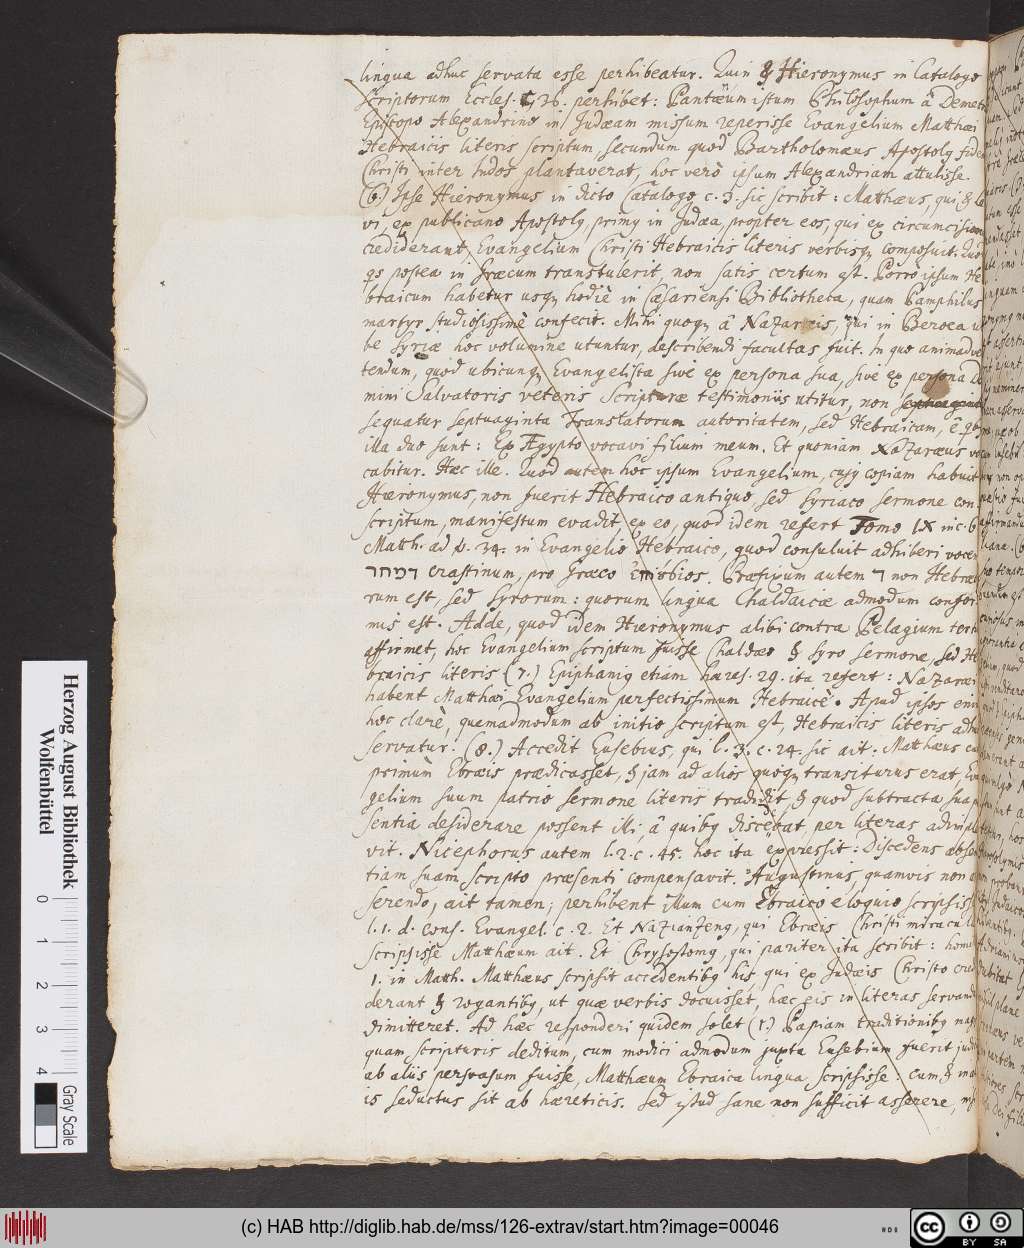 lingua adhuc servata esse perhibeatur. Quin & Hieronymus in Catalogo
Scriptorum Eccles. c. 36. perhibet: Pantæum istum Philosophum â Demet
Episcopo Alexandrino in Judæam missum reperisse Evangelium Matthæi
Hebraicis literis scriptum, secundum quod Bartholomæus Apostolq fide
Christi inter Judæos plantaverat, hoc verò ipsum Alexandriam attulisse.
(6.) Ipse Hieronymus in dicto Catalogo c. 3. sic scribit: Matthæus, qui & Le
vi, ex publicano Apostolq, primq in Judæa, propter eos, qui ex circumcision
crediderant, Evangelium Christi Hebraicis literis verbisq composuit. Quo
qs postea in Græcum transtulerit, non satis certum est. Porro ipsum He
braicum habetur usq hodiè in Cæsariensi Bibliotheca, quam Pamphilus
martyr studiosissimè confecit. Mihi quoq â Nazaræis, qui in Beroea ur
be Syriæ hoc volumine utuntur, describendi facultas fuit. In quo animadver
tendum, quod ubicunq Evangelista sive ex persona sua, sive ex persona Do
mini Salvatoris veteris Scripturæ testimoniis utitur, non
sequatur septuaginta Translatorum autoritatem, sed Hebraicam, ê qbq
illa duo sunt: Ex Ægypto vocavi filium meum. Et quoniam Nazaræus vo
cabitur. Hæc ille. Quod autem hoc ipsum Evangelium, cujq copiam habuit
Hieronymus, non fuerit Hebraico antiquo, sed Syriaco sermone con
scriptum, manifestum evadit ex eo, quod idem refert Tomo IX in c. 6
Matth. ad v. 34. in Evangelio Hebraico, quod consuluit adhiberi vocem
דמחר crastinum, pro Græco Præfixum autem ד non Hebræo
rum est, sed Syrorum: quorum lingua Chaldaicæ admodum confor
mis est. Adde, quod idem Hieronymus alibi contra Pelagium tert
affirmet, hoc Evangelium scriptum fuisse Chaldæo & Syro sermone, sed He
braicis literis (7.) Epiphaniq etiam hæres. 29. ita refert: Nazaræi
habent Matthæi Evangelium perfectissimum Hebraicè. Apud ipsos enim
hoc clarè, quemadmodum ab initio scriptum est, Hebraicis literis adhuc
servatur. (8.) Accedit Eusebius, qui l. 3. c. 24. sic ait. Matthæus cu
primùm Ebræis prædicasset, & jam ad aliòs quoq transiturus erat, Evan
gelium suum patrio sermone literis tradidit, & quod subtracta sua præ
sentia desiderare possent illi, â quibq discedebat, per literas adimple
vit. Nicephorus autem l. 2. c. 45. hoc ita expressit: Discedens absen
tiam suam scripto præsenti compensavit. Augustinus, quamvis non a
serendo, ait tamen; perhibent illum eum Ebraico eloquio scripsiss
l. 1. d. cons. Evangel. c. 2. Et Nazianzenq, qui Ebræis Christi miracula
scripsisse Matthæum ait. Et Chrysostomq, qui pariter ita scribit: homil
1. in Matth. Matthæus scripsit accedentibq his, qui ex Judæis Christo credi
derant & rogantibq, ut quæ verbis docuisset, hæc eis in literas servanda
dimitteret. Ad hæc responderi quidem solet (1.) Papiam traditionibq magis
quam scripturis deditum, cum modici admodum juxta Eusebium fuerit judi
ab aliis persvasum fuisse, Matthæum Ebraica lingua scripsisse. cum &
is seductus sit ab hæreticis. Sed istud sane non sufficit asserere,
Herzog August Bibliothek
Wolfenbüttel
0 1 2 3 4
Gray Scale
(c) HAB http://diglib.hab.de/mss/126-extrav/start.htm?image=00046
cc BY SA